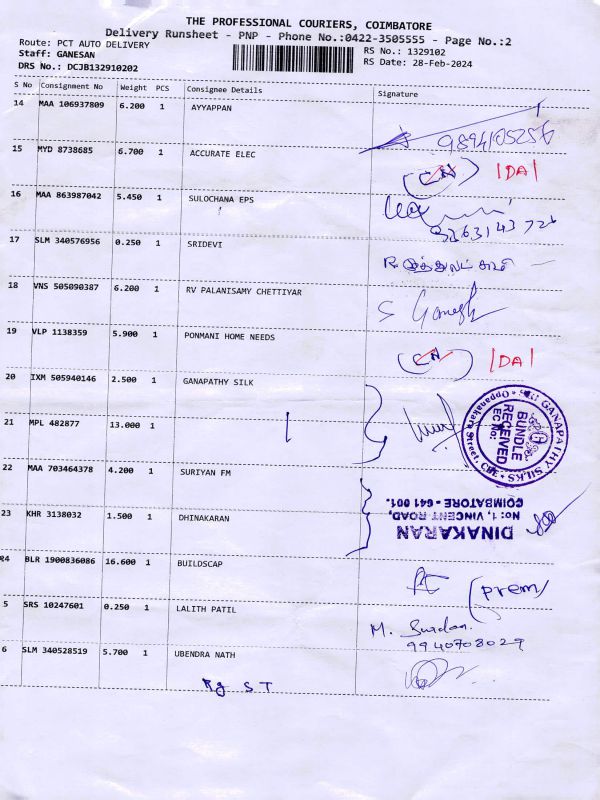 THE PROFESSIONAL COURIERS, COIMBATORE
Delivery Runsheet - PNP - Phone No.:0422-3505555 - Page No.:2
Route: PCT AUTO DELIVERY
Staff: GANESAN
DRS No.: DCJB132910202
RS No.: 1329102
RS Date: 28-Feb-2024
S No Consignment No Weight PCS Consignee Details Signature
14 MAA 106937809 6.200 1 AYYAPPAN
15 MYD 8738685 6.700 1 ACCURATE ELEC
(CN) |DA|
16 MAA 863987042 5.450 1 SULOCHANA EPS
17 SLM 340576956 0.250 1 SRIDEVI
18 VNS 505090387 6.200 1 RV PALANISAMY CHETTIYAR
S Ganesh
19 VLP 1138359 5.900 1 PONMANI HOME NEEDS
(CN) |DA|
20 IXM 505940146 2.500 1 GANAPATHY SILK
SRI GANAPATHY SILKS
Oppanakara Street, CBE
BUNDLE
RECEIVED
EC No:
21 MPL 482877 13.000 1
22 MAA 703464378 4.200 1 SURIYAN FM
23 KHR 3138032 1.500 1 DHINAKARAN
DINAKARAN
No: 1, VINCENT ROAD,
COIMBATORE - 641 001.
24 BLR 1900836086 16.600 1 BUILDSCAP
(prem)
5 SRS 10247601 0.250 1 LALITH PATIL
M.
9940708029
6 SLM 340528519 5.700 1 UBENDRA NATH
Rg S T